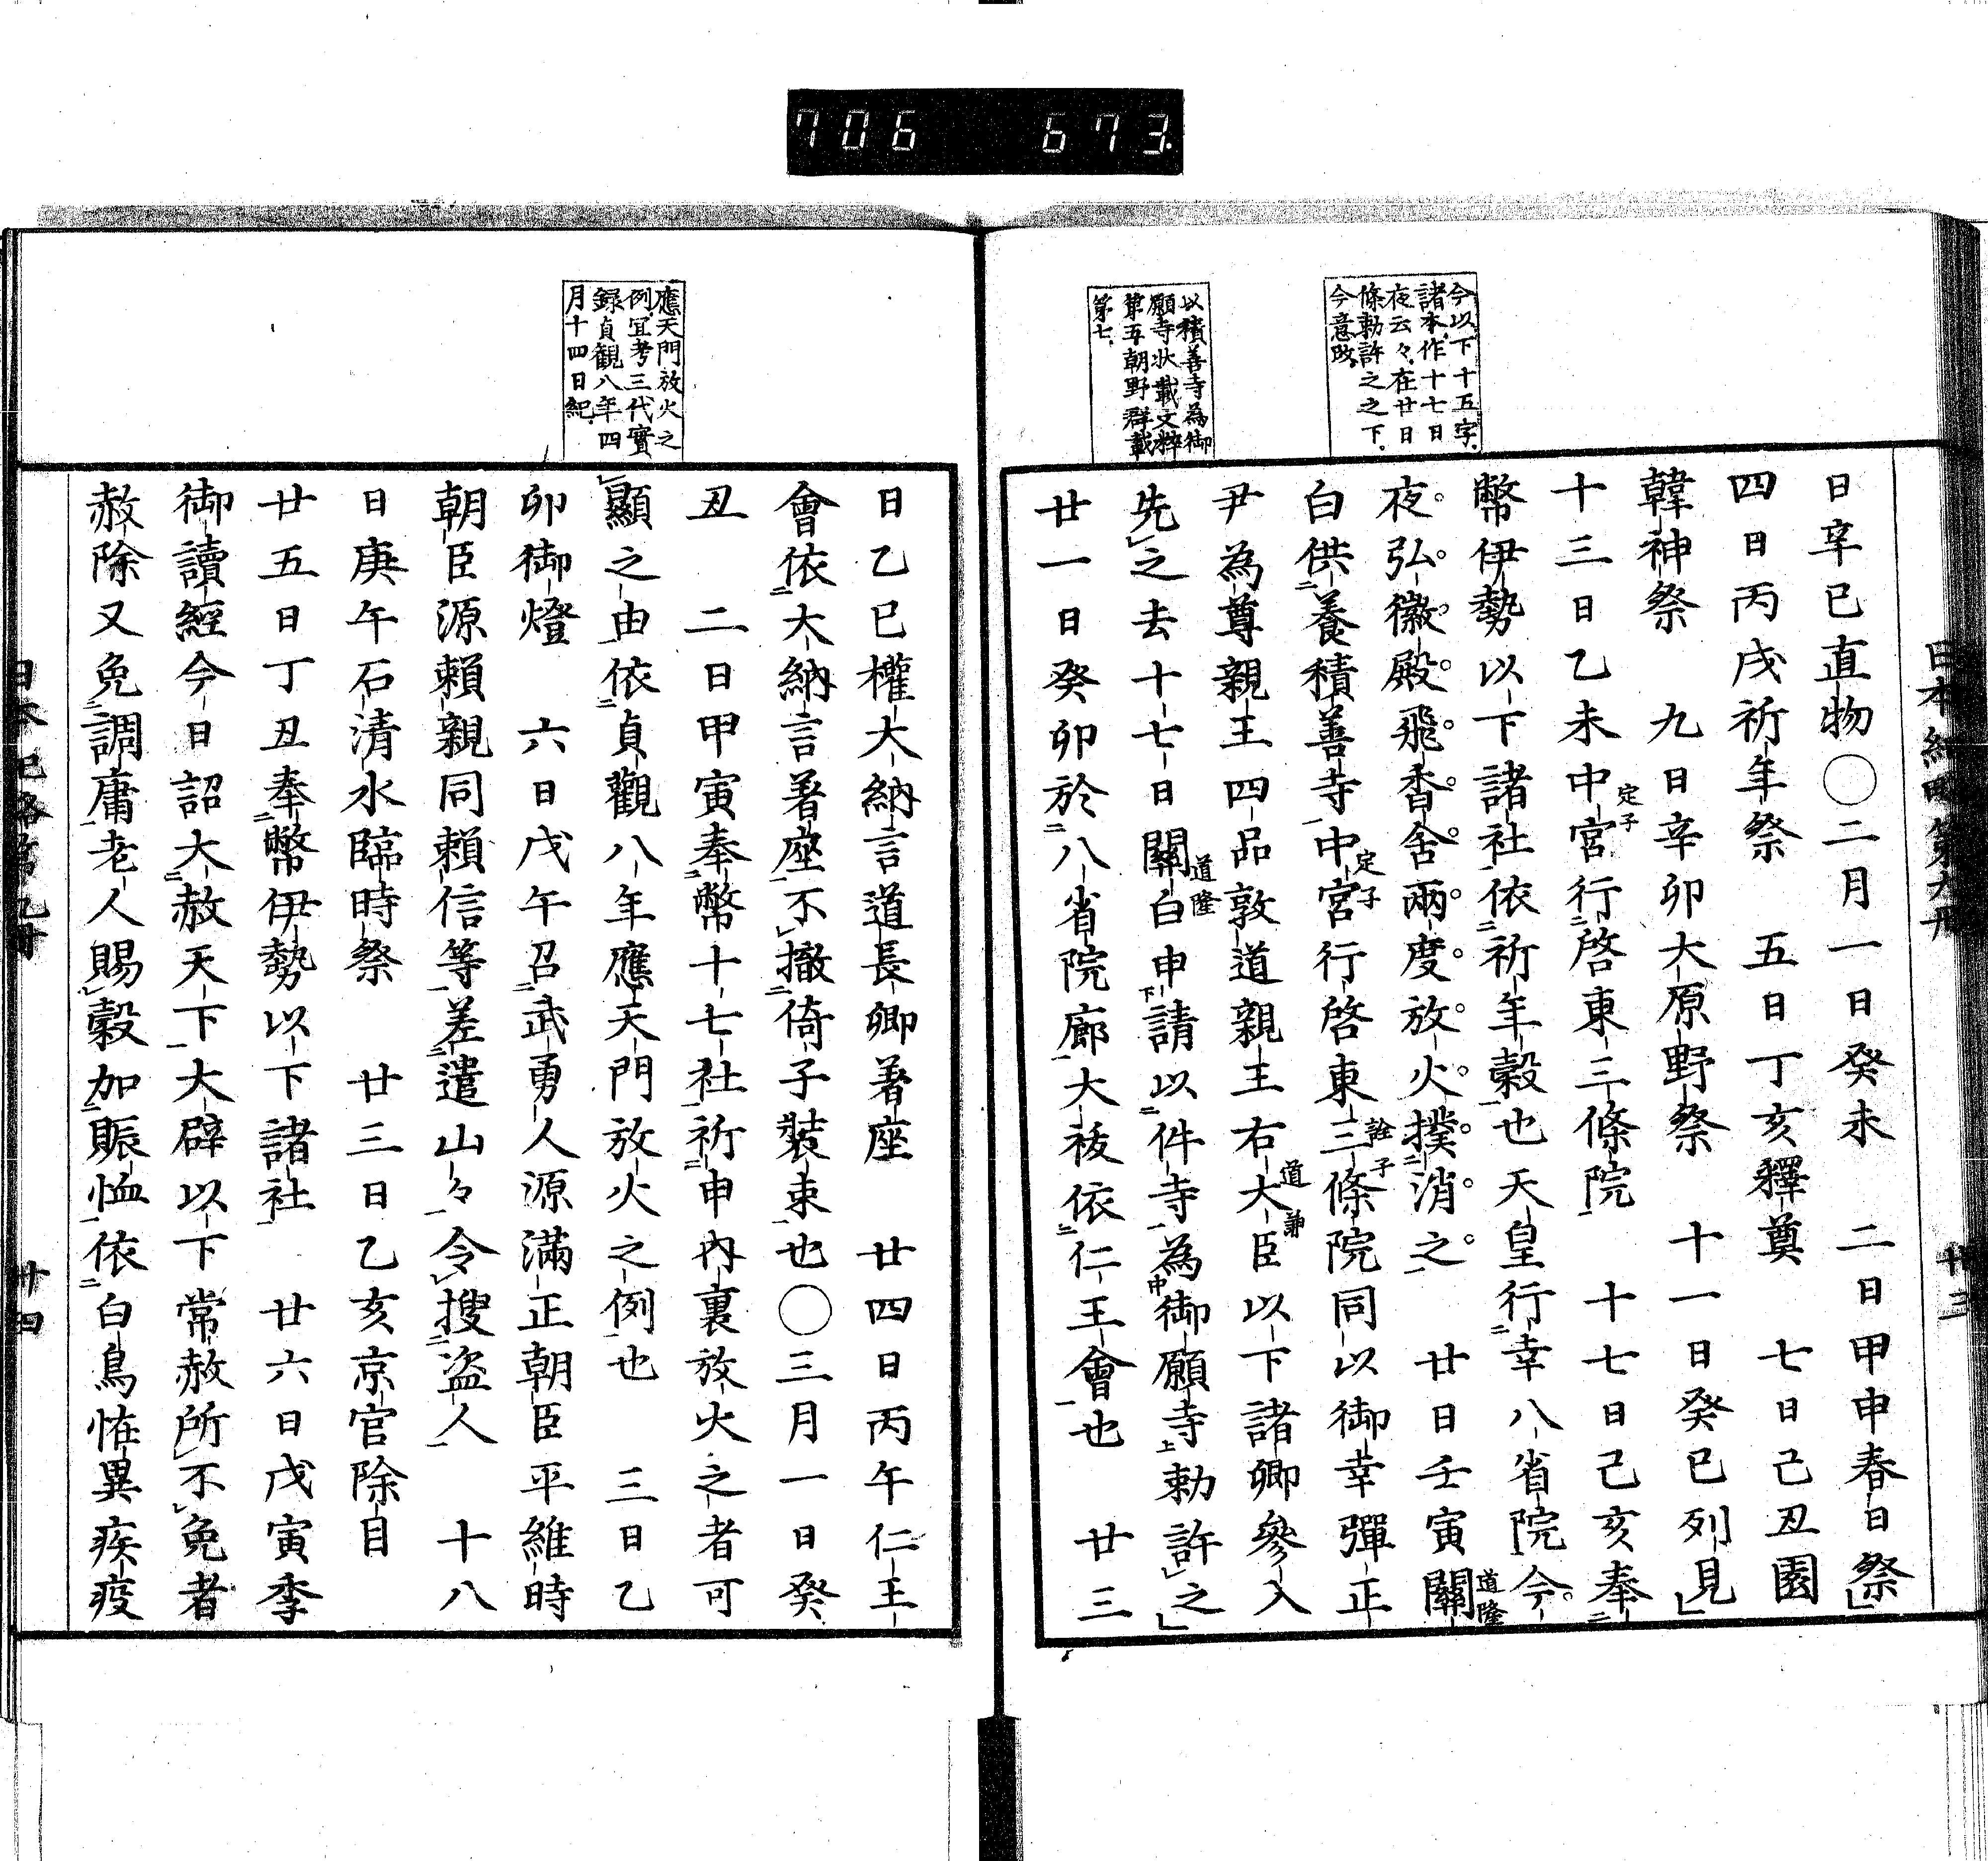 706 673.
今以下十五字、
諸本作十七日
夜云々、在廿日
條勅許之之下、
今意改、
以積善寺為御
願寺狀載文粹
第五朝野群載
第七、
日辛巳直物〇二月一日癸未　二日甲申春日祭
四日丙戌祈年祭　五日丁亥釋奠　七日己丑園
韓神祭　九日辛卯大原野祭　十一日癸巳列見
十三日乙未中宮定子行啓東三條院　十七日己亥奉
幣伊勢以下諸社依祈年穀也天皇行幸八省院今
夜弘徽殿飛香舍兩度放火撲消之　廿日壬寅關道隆
白供養積善寺中宮定子行啓東三條院詮子同以御幸彈正
尹為尊親王四品敦道親王右大臣道兼以下諸卿參入
先之去十七日關白道隆申請以件寺為御願寺勅許之
廿一日癸卯於八省院廊大祓依仁王會也　廿三
日本紀略第九
廿三
應天門放火之
例、宜考三代實
録貞觀八年四
月十四日紀、
日乙巳權大納言道長卿著座　廿四日丙午仁王
會依大納言著座不撤倚子裝束也〇三月一日癸
丑　二日甲寅奉幣十七社祈申內裏放火之者可
顯之由依貞觀八年應天門放火之例也　三日乙
卯御燈　六日戊午召武勇人源滿正朝臣平維時
朝臣源賴親同賴信等差遣山々令搜盗人　十八
日庚午石清水臨時祭　廿三日乙亥京官除目
廿五日丁丑奉幣伊勢以下諸社　廿六日戊寅季
御讀經今日詔大赦天下大辟以下常赦所不免者
赦除又免調庸老人賜穀加賑恤依白鳥恠異疾疫
日本紀略第九
廿四